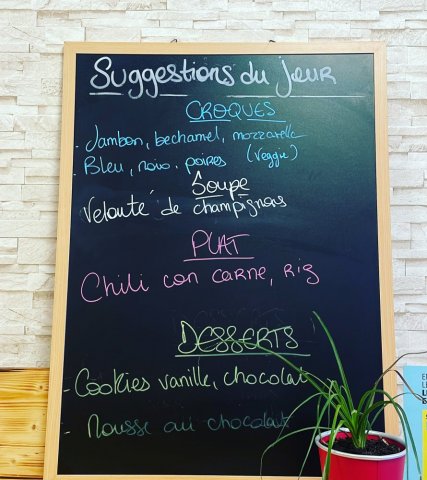 Suggestions du jour
CROQUES
- Jambon, bechamel, mozzarelle
- Bleu, noix, poires (Veggie)
Soupe
Velouté de champignons
PLAT
Chili con carne, riz
DESSERTS
- Cookies vanille, chocolat
- Mousse au chocolat